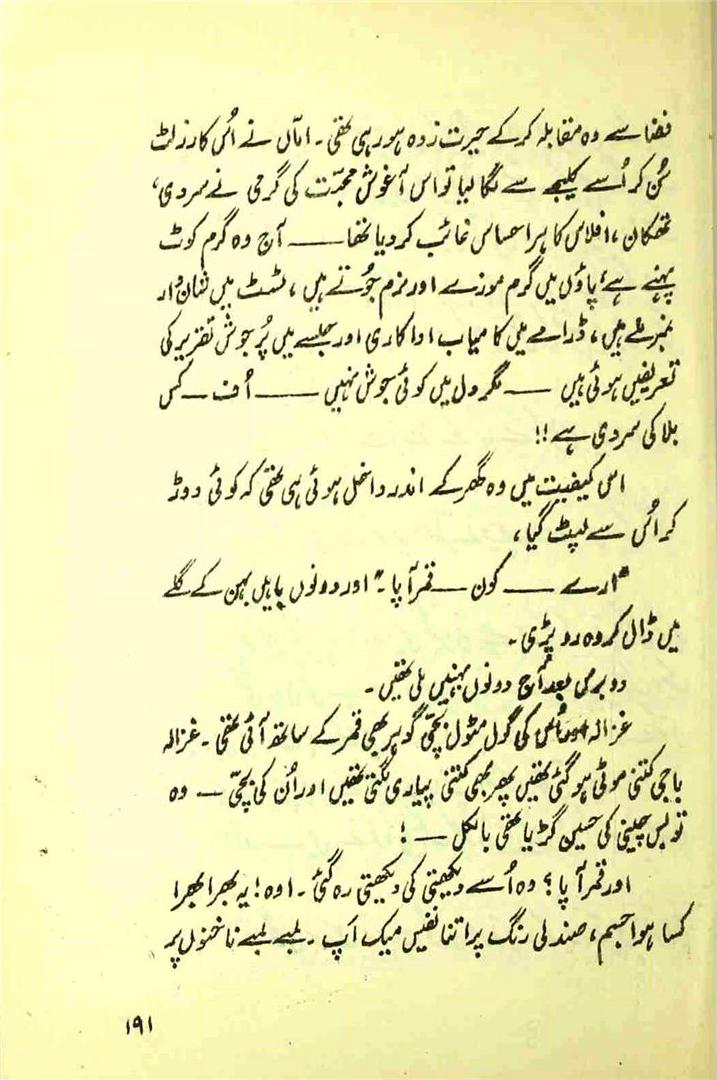 فضا سے وہ مقابلہ کر کے حیرت زدہ ہو رہی تھی۔ امّاں نے اُس کا رزلٹ
سُن کر اُسے کلیجے سے لگا لیا تو اس آغوش محبّت کی گرمی نے سردی،
تھکان، افلاس کا ہر احساس غائب کر دیا تھا —— آج وہ گرم کوٹ
پہنے ہے، پاؤں میں گرم موزے اور نرم جُوتے ہیں، ٹسٹ میں شان دار
نمبر ملے ہیں، ڈرامے میں کامیاب اداکاری اور جلسے میں پُر جوش تقریر کی
تعریفیں ہوئی ہیں —— مگر دل میں کوئی جوش نہیں —— اُف — کس
بلا کی سردی ہے!!
اس کیفیت میں وہ گھر کے اندر داخل ہوئی ہی تھی کہ کوئی دوڑ
کر اُس سے لپٹ گیا،
"ارے —— کون — قمر آپا۔" اور دونوں باہیں بہن کے گلے
میں ڈال کر وہ رو پڑی۔
دو برس بعد آج دونوں بہنیں ملی تھیں۔
غزالہ اور اُس کی گول مٹول بچّی گوہر بھی قمر کے ساتھ آئی تھی۔ غزالہ
باجی کتنی موٹی ہو گئی تھیں پھر بھی کتنی پیاری لگتی تھیں اور اُن کی بچّی — وہ
تو بس چینی کی حسین گڑیا تھی بالکل —!
اور قمر آپا؟ وہ اُسے دیکھتی کی دیکھتی رہ گئی۔ اوہ! یہ بھرا بھرا
کسا ہوا جسم، صندلی رنگ پر اتنا نفیس میک اَپ۔ لمبے لمبے ناخنوں پر
۱۹۱